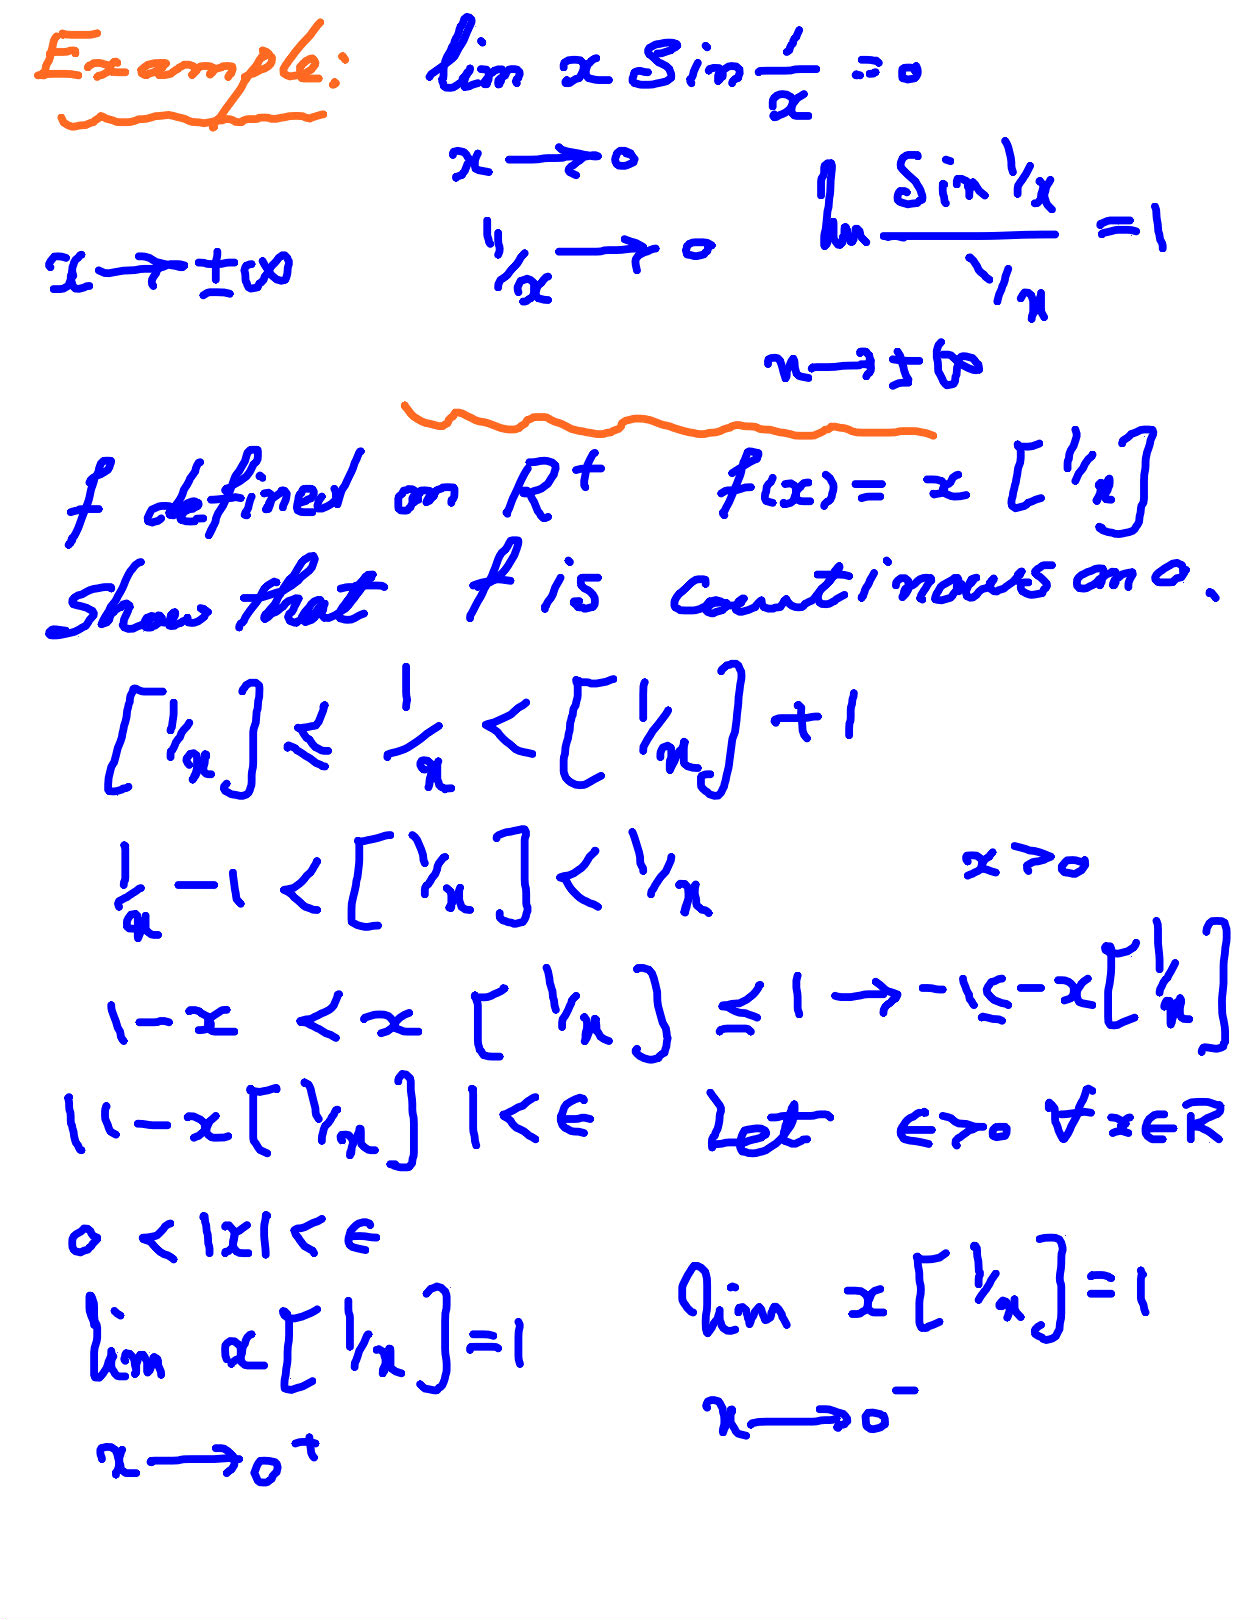 Example: lim x Sin 1/x = 0
x → 0
lim Sin 1/x / 1/x = 1
x → ±∞ 1/x → 0
x → ±∞
f defined on R⁺ f(x) = x [1/x]
Show that f is countinous on 0.
[1/x] ≤ 1/x < [1/x] + 1
1/x - 1 < [1/x] < 1/x x > 0
1 - x < x [1/x] ≤ 1 → -1 ≤ -x [1/x]
|1 - x [1/x]| < ϵ Let ϵ > 0 ∀ x ∈ R
0 < |x| < ϵ
lim x [1/x] = 1 lim x [1/x] = 1
x → 0⁺ x → 0⁻